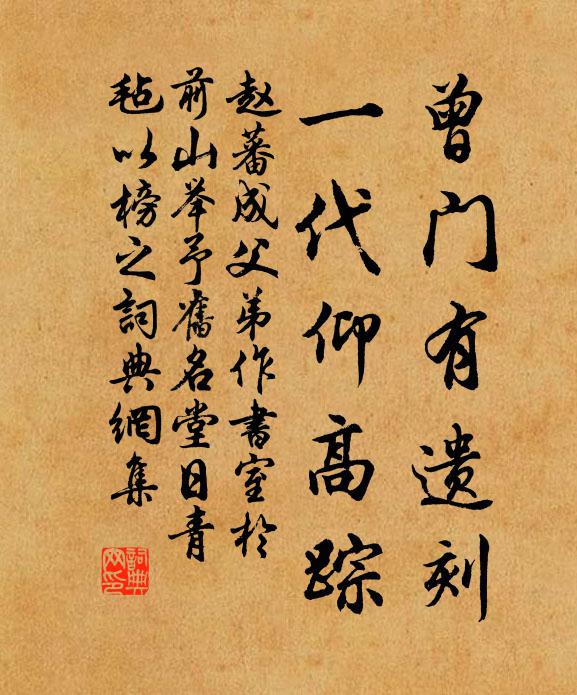 曾门有遗刻
一代仰高踪
赵蕃成父弟作书室於
前山举予旧名堂曰青
毡以榜之詞典網集
詞典网印